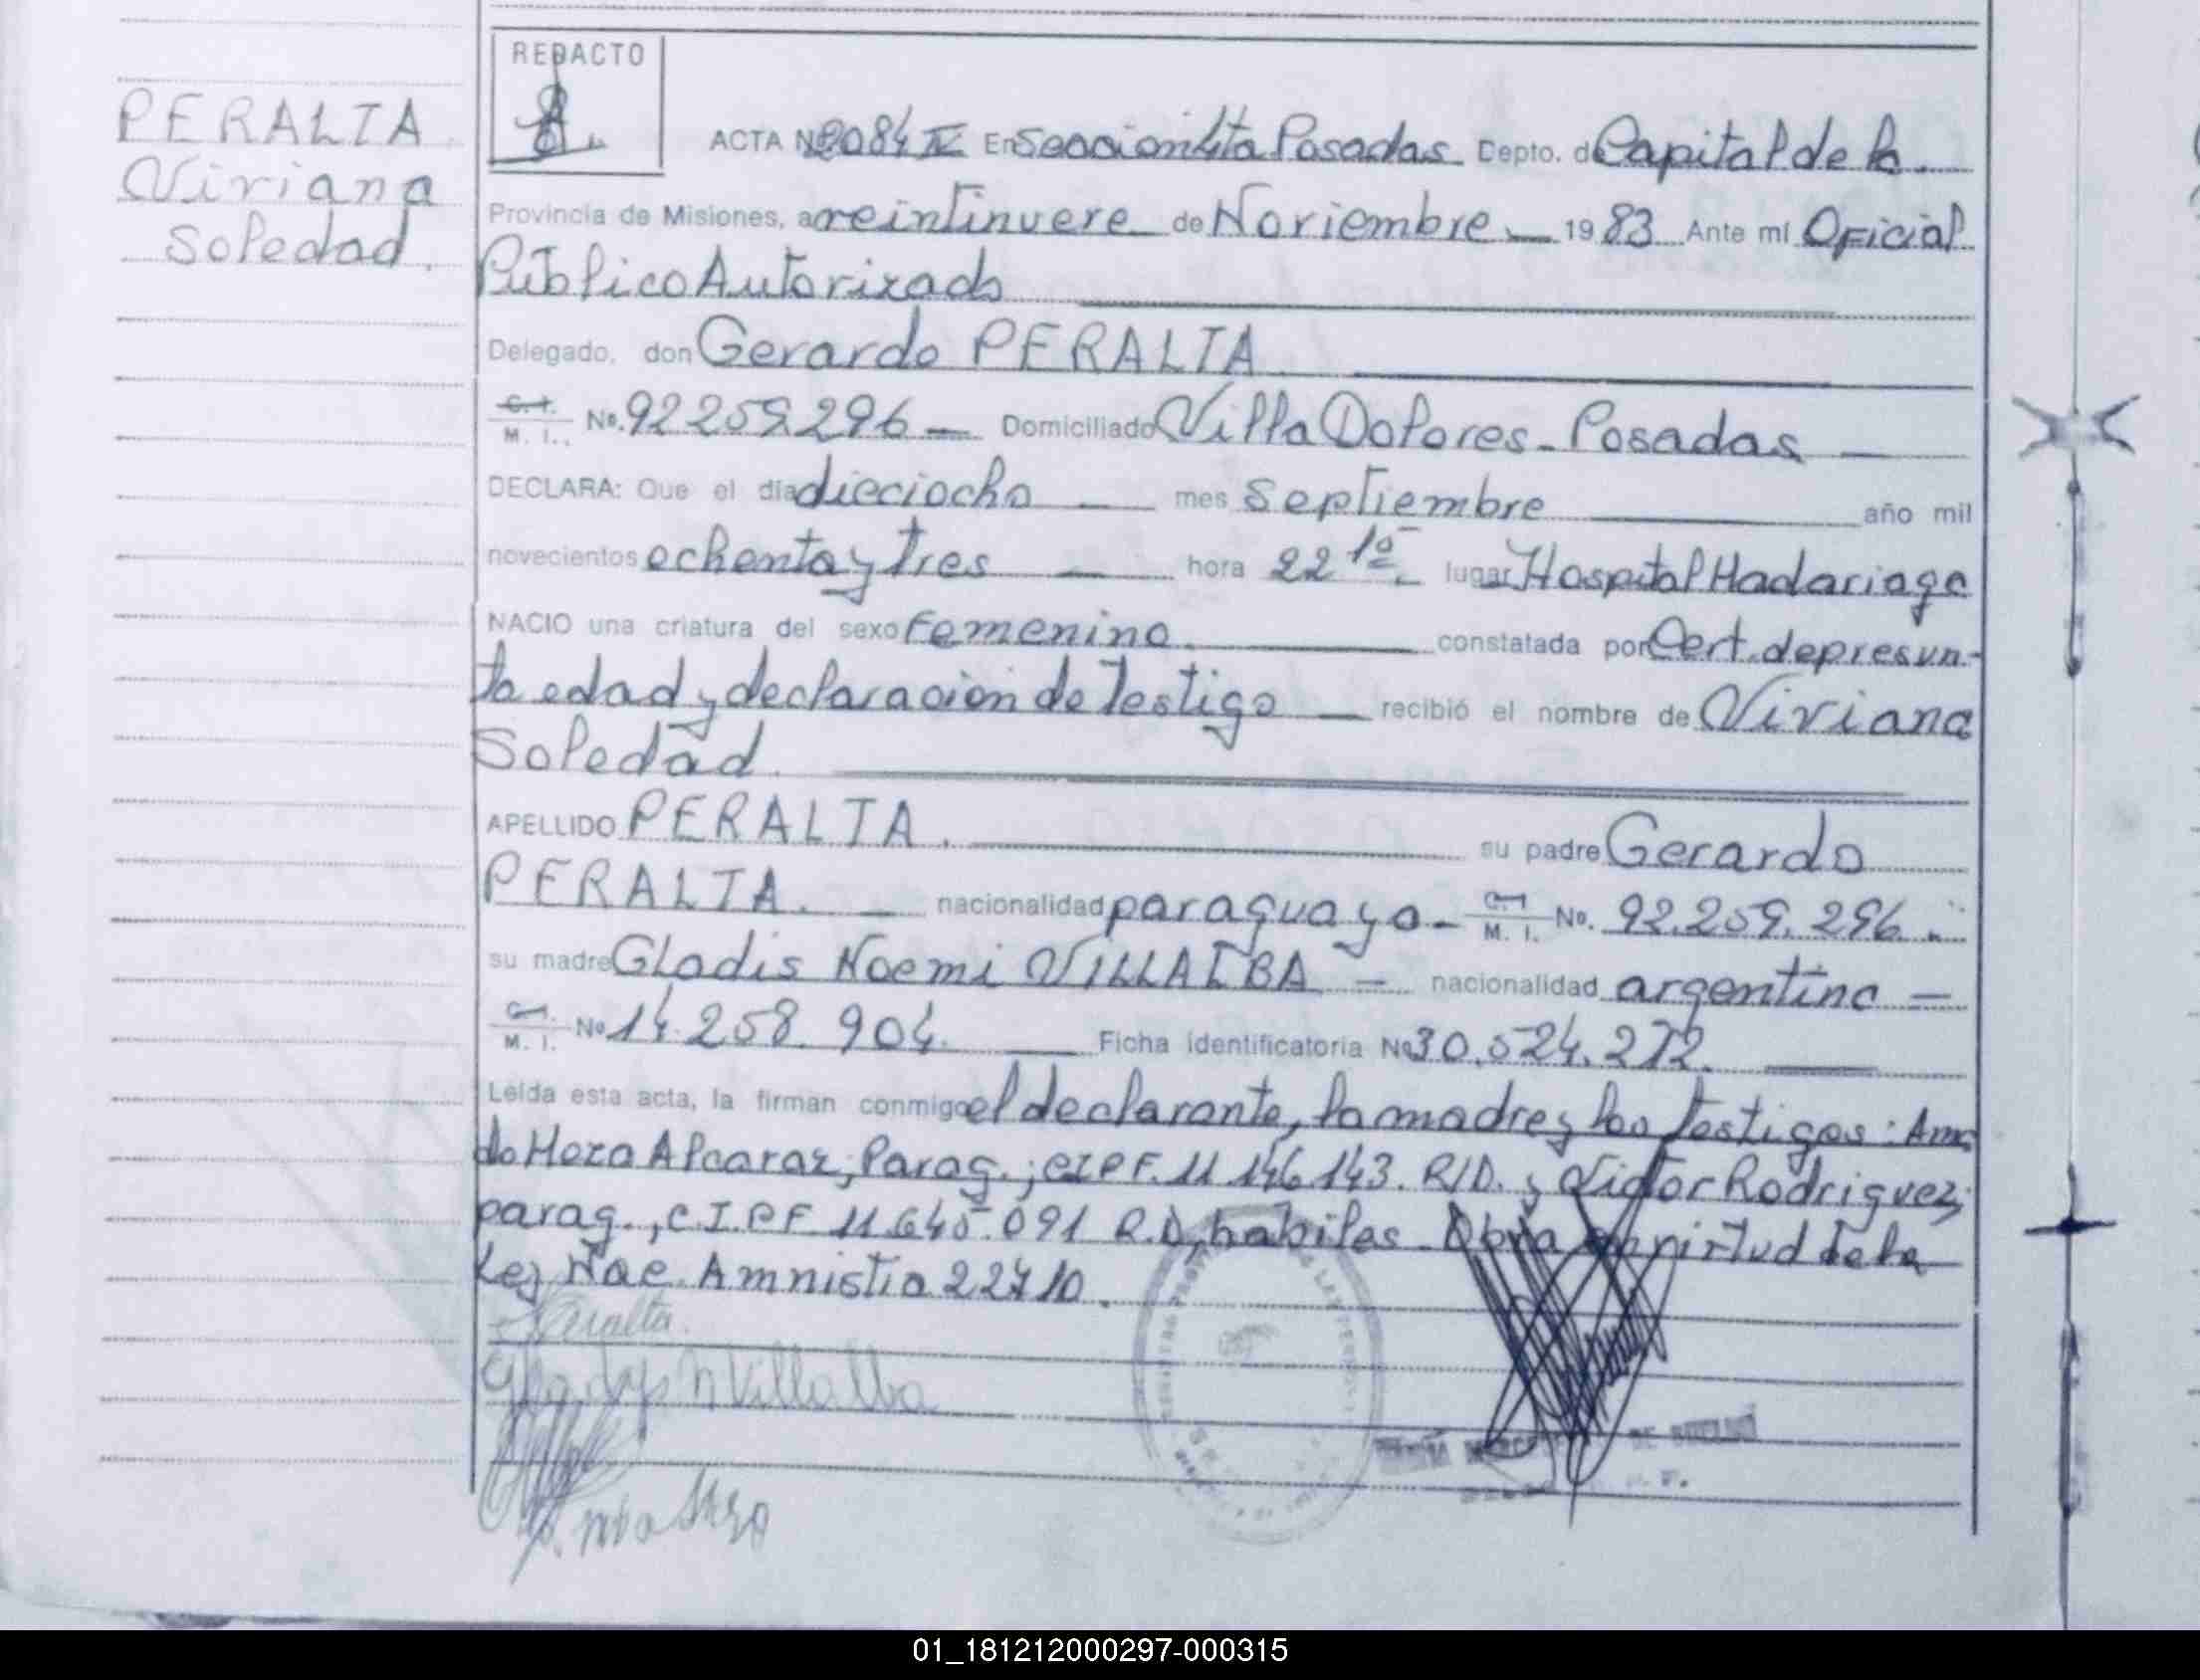 PERALTA
Viviana
Soledad.
REDACTO
ACTA Nº 2084 IV En Seccion 4ta Posadas Depto. de Capital de la
Provincia de Misiones, a veintinueve de Noviembre 1983 Ante mí Oficial
Público Autorizado
Delegado, don Gerardo PERALTA
C. I. M. I. No. 92259.296 Domiciliado Villa Dolores - Posadas
DECLARA: Que el día dieciocho mes septiembre año mil
novecientos ochenta y tres hora 22 10 lugar Hospital Madariaga
NACIO una criatura del sexo femenino. constatada por Cert. de presun-
ta edad y declaracion de Testigo recibió el nombre de Viviana
Soledad.
APELLIDO PERALTA. su padre Gerardo
PERALTA. nacionalidad paraguayo - C. I. M. I. No. 92.259.296.
su madre Gladis Noemi VILLALBA nacionalidad argentina
C. I. M. I. No 14.258.904. Ficha identificatoria No 30.524.272.
Leída esta acta, la firman conmigo el declarante, la madre y los Testigos:
Alcaraz, Parag.; CIPF. 11.146.143. R/D. y Victor Rodriguez,
parag., C.I.PF 11.645.091 R.D, habiles - Obra en virtud de la
Ley Nac. Amnistia 22410.
Peralta.
Gladys N Villalba
DE
01_181212000297-000315